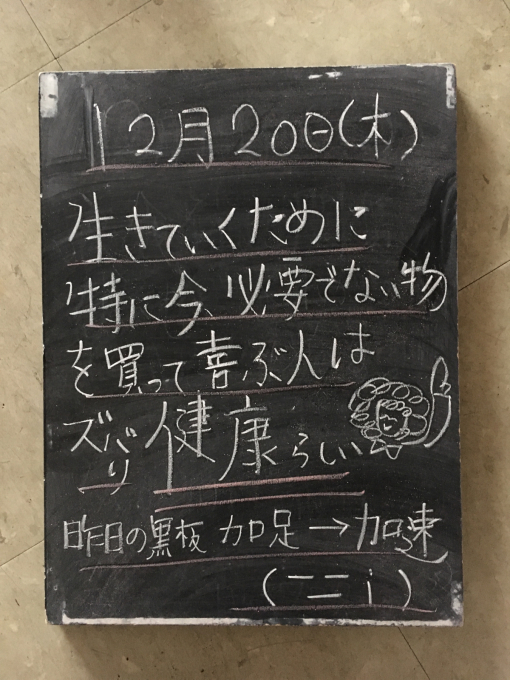 12月20日(木)
生きていくために
特に今、必要でない物
を買って喜ぶ人は
ズバリ健康らしい
昨日の黒板 加足→加速
(ニニi)